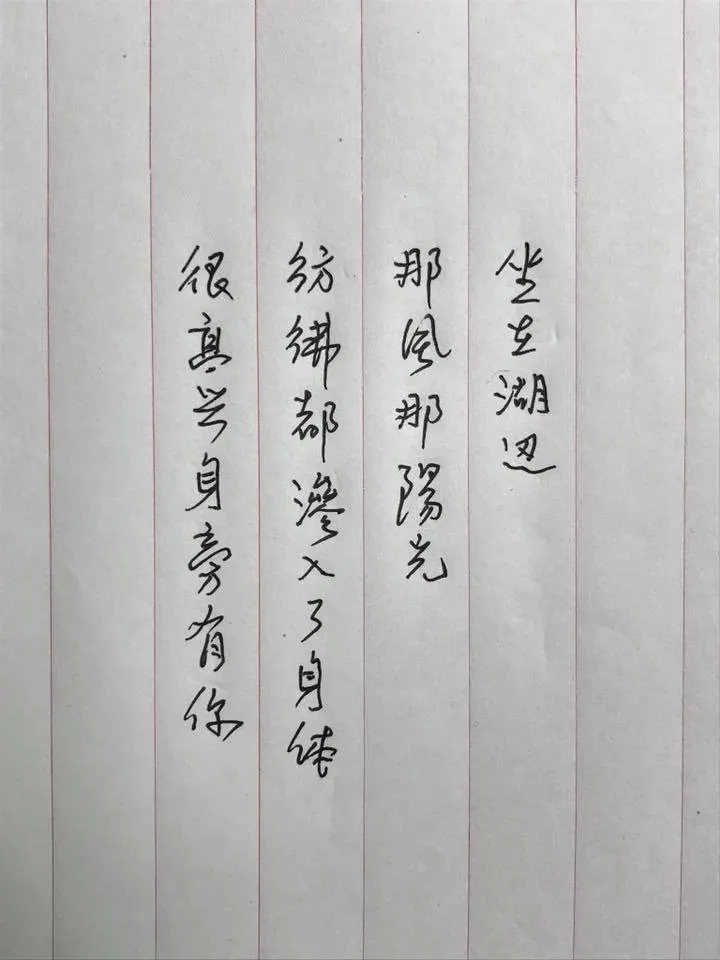 坐在湖边
那风那陽光
彷彿都滲入了身体
很高兴身旁有你